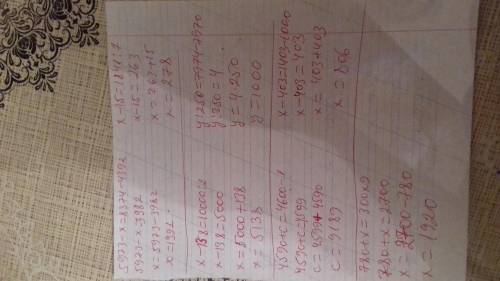 5973-x=8374-4392
5973-x=3982
x=5973-3982
x=1991
x-15=1841:7
x-15=263
x=263+15
x=278
x-138=10000:2
x-138=5000
x=5000+138
x=5138
y:250=7974-7970
y:250=4
y=4·250
y=1000
4590+c=4600-1
4590+c=4599
c=4599+4590
c=9189
x-403=1403-1000
x-403=403
x=403+403
x=806
780+x=300x9
780+x=2700
x=2700-780
x=1920